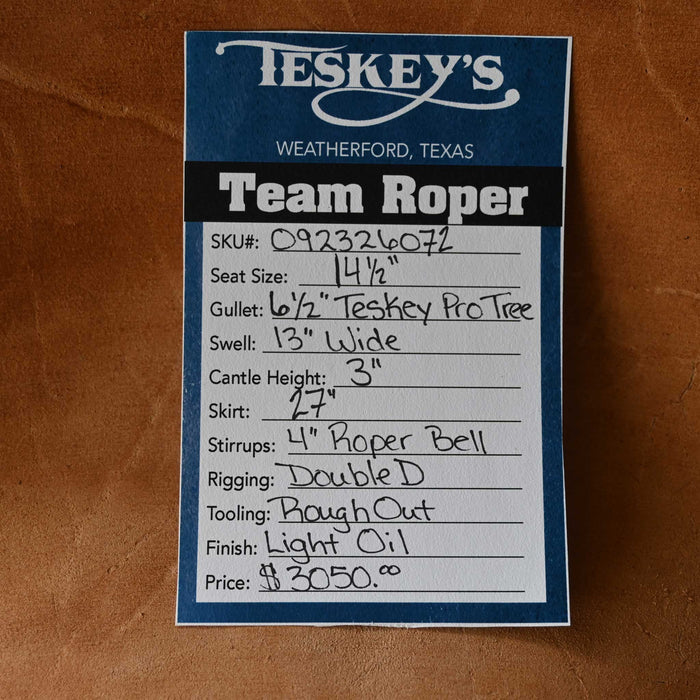 TESKEY'S
WEATHERFORD, TEXAS
Team Roper
SKU#: 092326072
Seat Size: 14 1/2"
Gullet: 6 1/2" Teskey Pro Tree
Swell: 13" Wide
Cantle Height: 3"
Skirt: 27"
Stirrups: 4" Roper Bell
Rigging: Double D
Tooling: Rough Out
Finish: Light Oil
Price: $3050.00